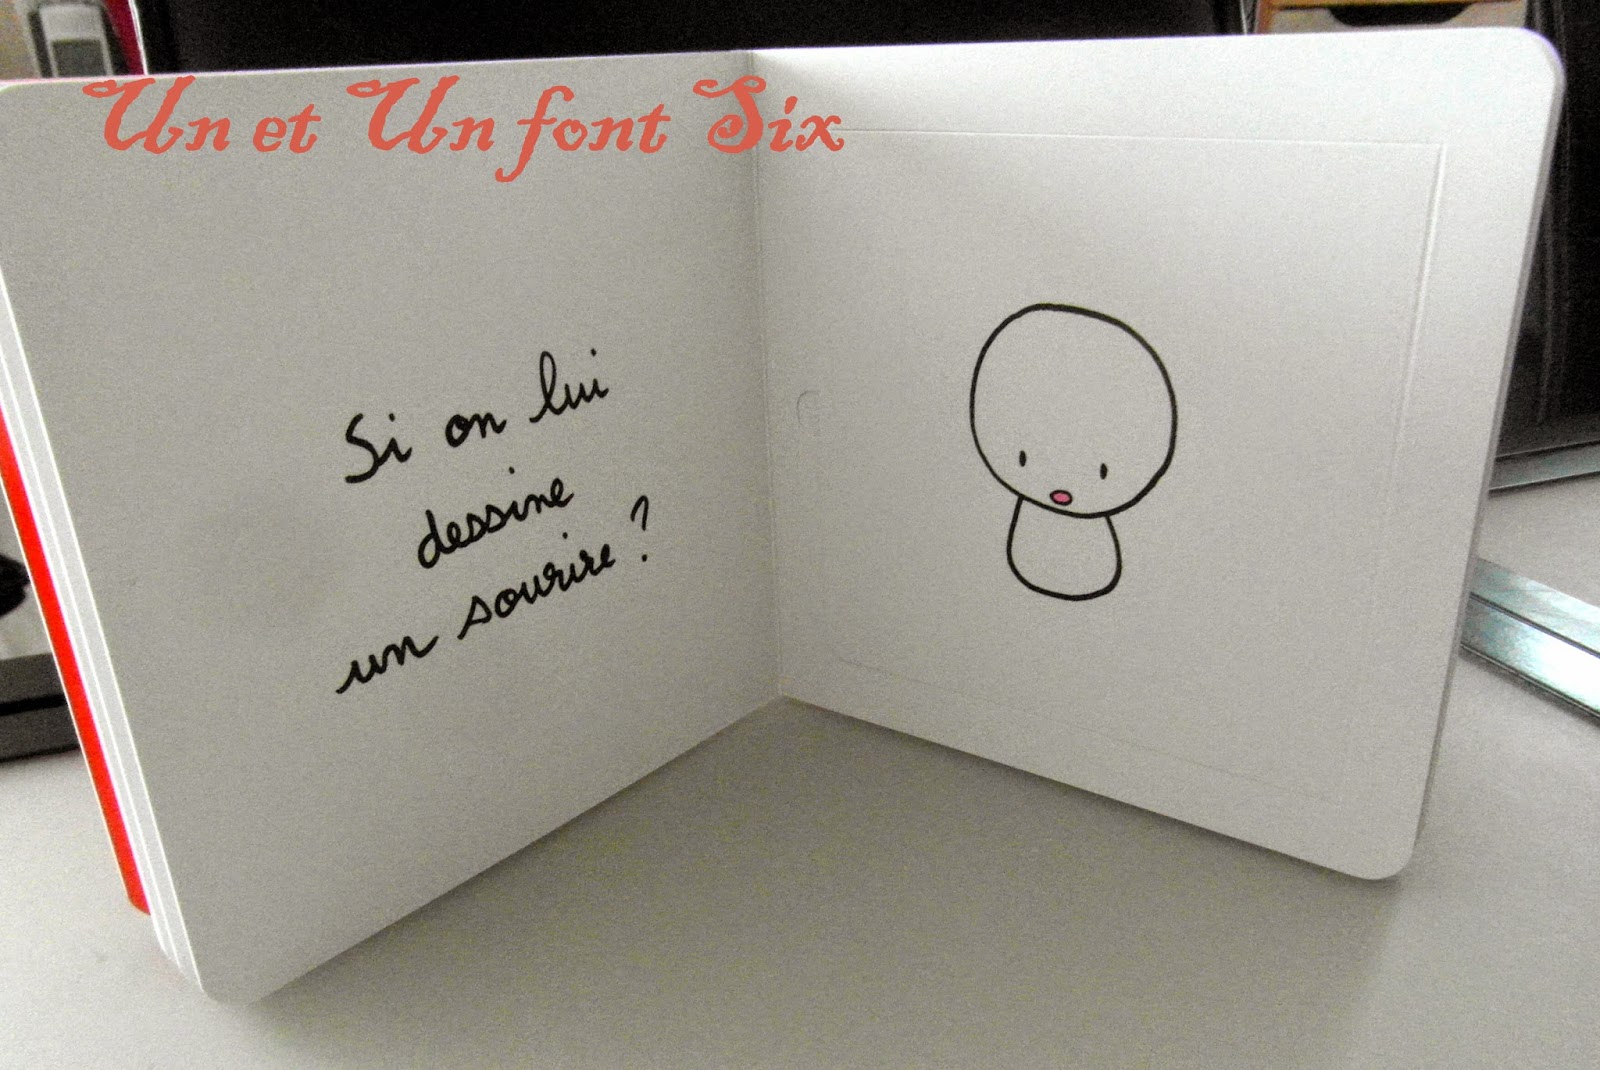 Un et Un font Six
Si on lui
dessine
un sourire ?